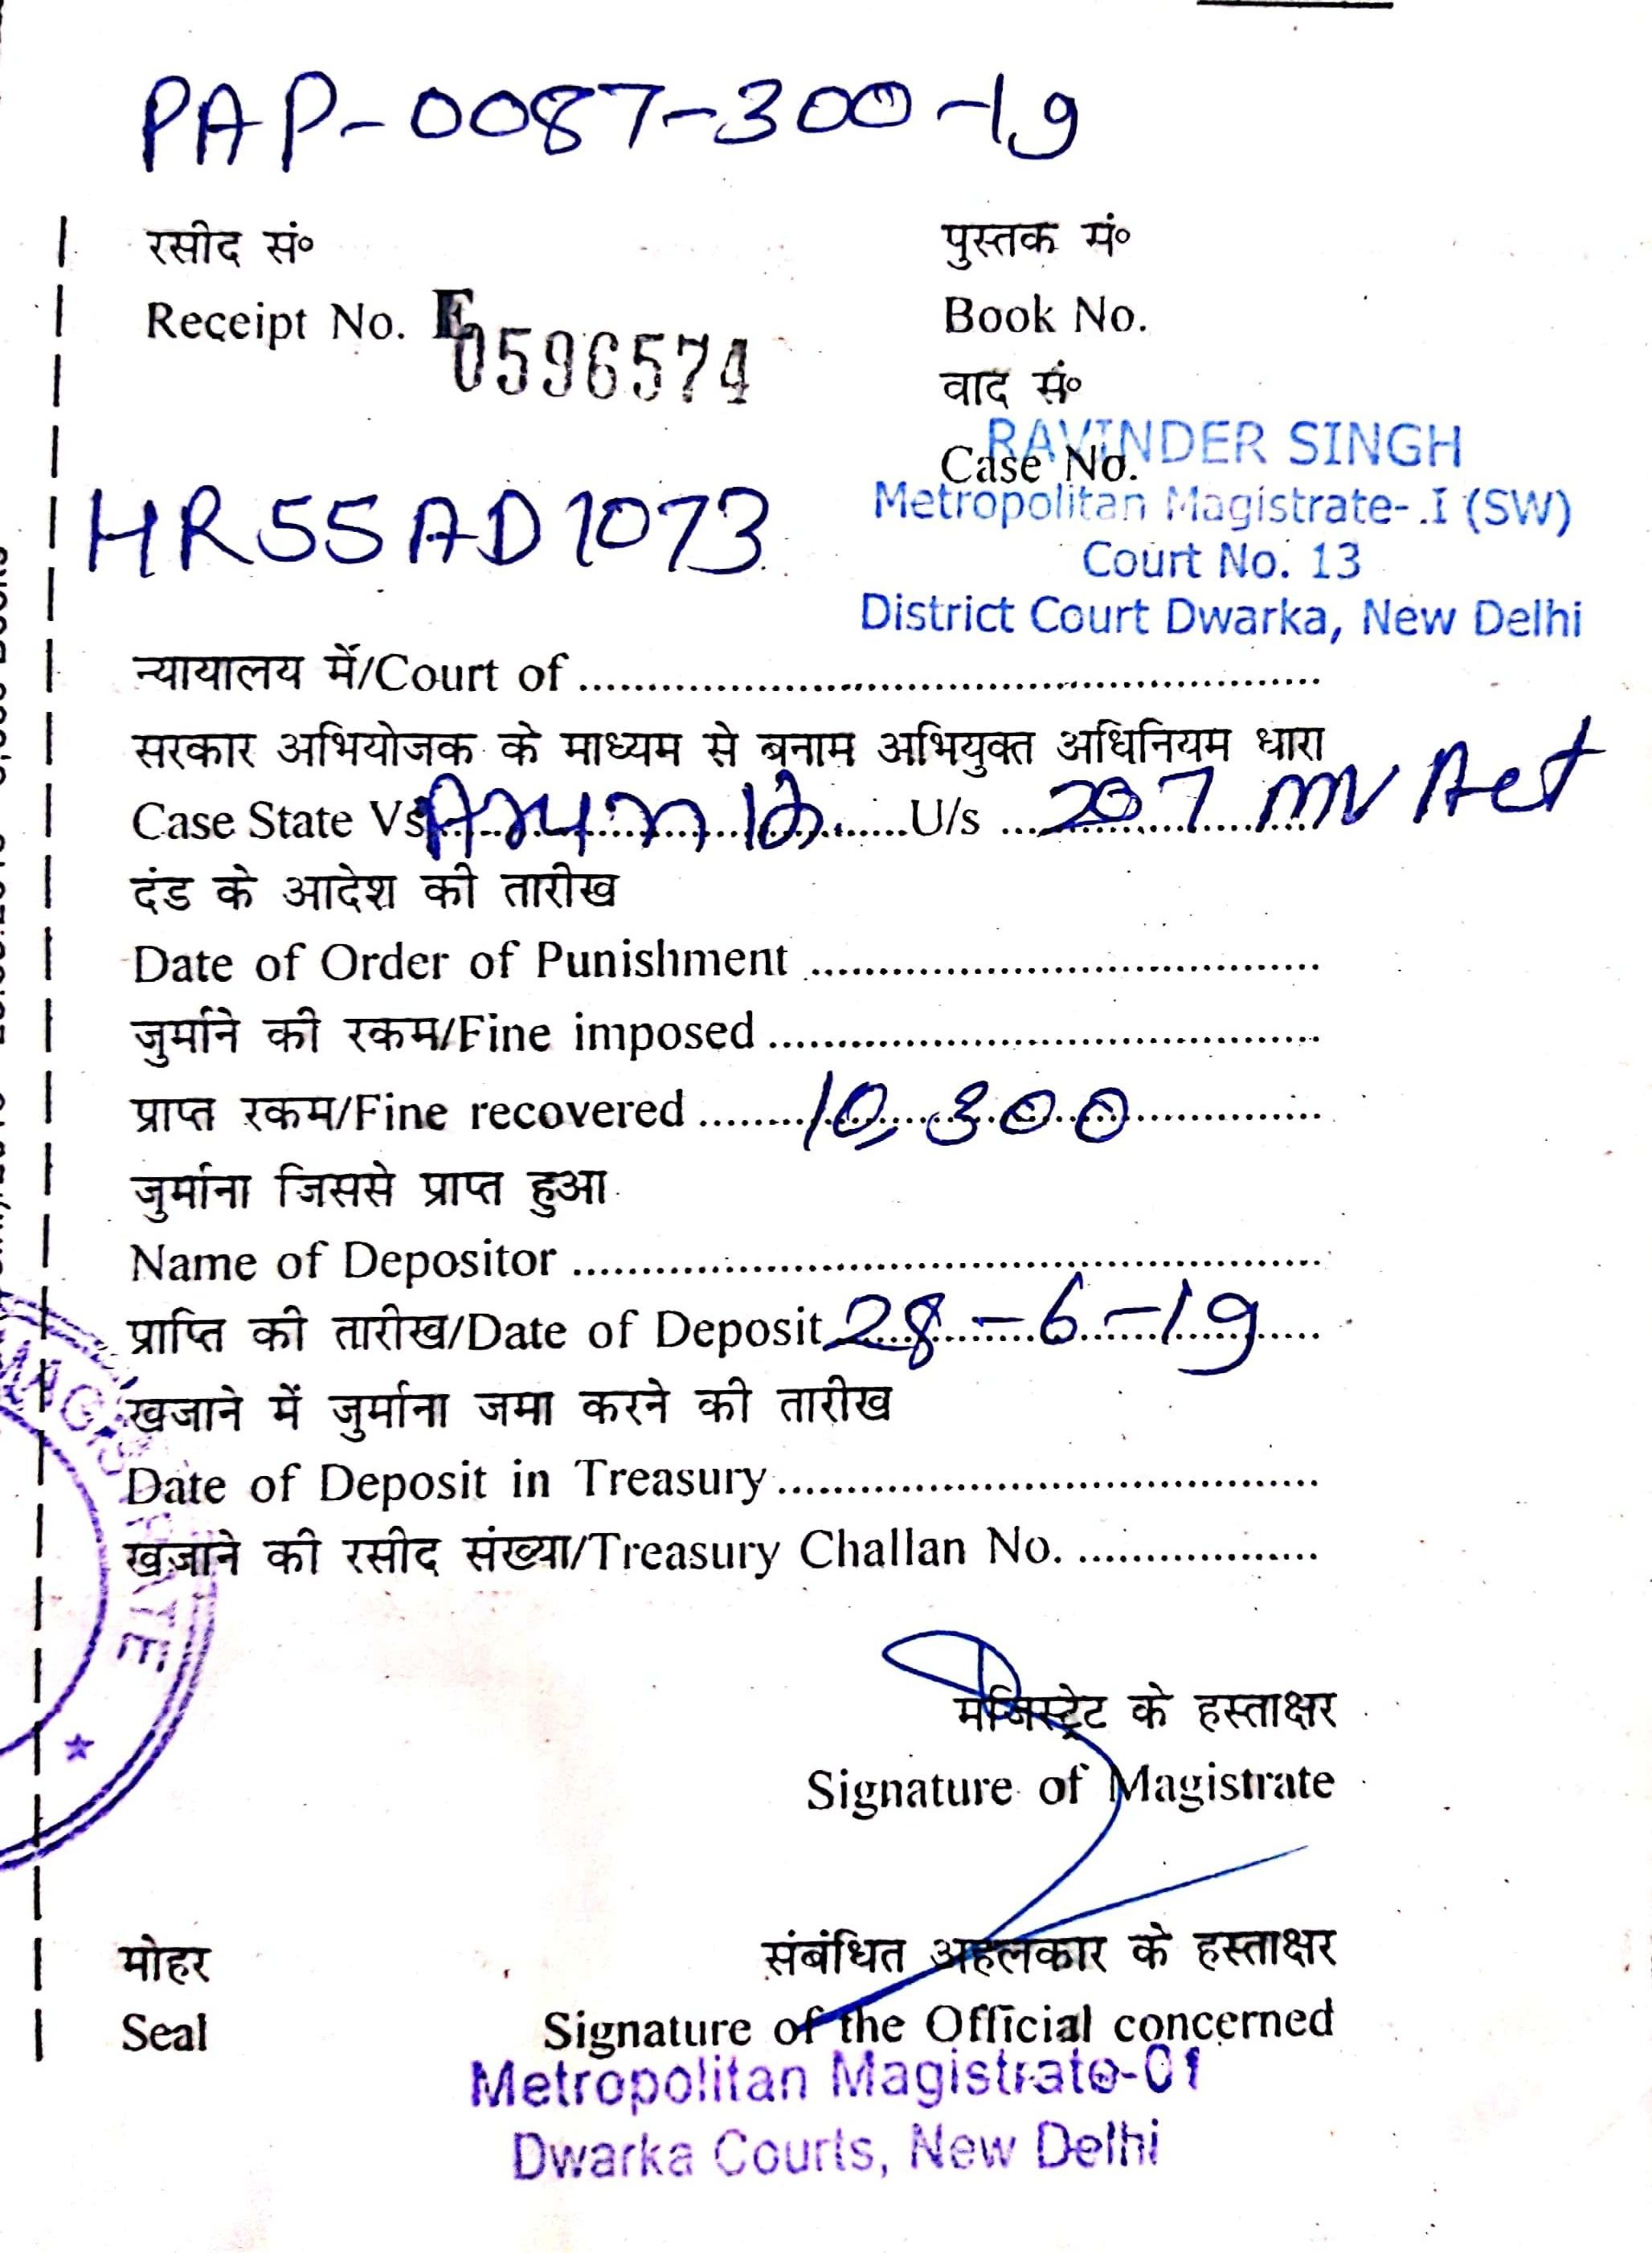 PAP-0087-300-19
रसीद सं०
पुस्तक सं०
Receipt No. E 0596574
Book No.
वाद सं०
Case No.
RAVINDER SINGH
Metropolitan Magistrate-.I (SW)
Court No. 13
District Court Dwarka, New Delhi
HR55AD1073
न्यायालय में/Court of
सरकार अभियोजक के माध्यम से बनाम अभियुक्त अधिनियम धारा
Case State Vs U/s 207 MV Act
दंड के आदेश की तारीख
Date of Order of Punishment
जुर्माने की रकम/Fine imposed
प्राप्त रकम/Fine recovered 10,300
जुर्माना जिससे प्राप्त हुआ
Name of Depositor
प्राप्ति की तारीख/Date of Deposit 28-6-19
खजाने में जुर्माना जमा करने की तारीख
Date of Deposit in Treasury
खजाने की रसीद संख्या/Treasury Challan No.
मजिस्ट्रेट के हस्ताक्षर
Signature of Magistrate
मोहर
संबंधित अहलकार के हस्ताक्षर
Seal
Signature of the Official concerned
Metropolitan Magistrate-01
Dwarka Courts, New Delhi